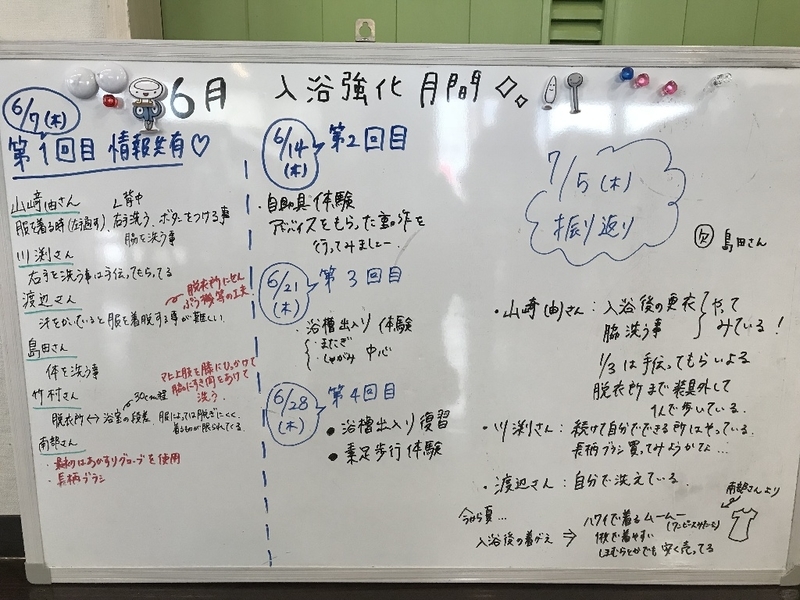 6月 入浴強化月間
6/7(木)
第1回目 情報共有♡
山﨑由さん
背中
服を着る時(左通す)、右手洗う、ボタンをつける事
脇を洗う事
川渕さん
右手を洗う事は手伝ってもらってる
渡辺さん
脱衣所にせん
ぷう機等の工夫
汗をかいていると服を着脱する事が難しい
島田さん
体を洗う事
マヒ上肢を膝にひっかけて
脇にすき間をあけて
洗う。
竹村さん
30cm程
脱衣所↔浴室の段差 服によっては脱ぎにくく
着るものが限られてくる。
南部さん
・最初はあかすりグローブを使用
・長柄ブラシ
6/14(木)
第2回目
・自助具体験
アドバイスをもらった動作を
行ってみましょー。
6/21(木)
第3回目
・浴槽出入り体験
・またぎ
・しゃがみ 中心
6/28(木)
第4回目
●浴槽出入り復習
●素足歩行体験
7/5(木)
振り返り
欠 島田さん
・山﨑(由)さん:入浴後の更衣
脇洗う事
やって
みている!
1/3は手伝ってもらいよる
脱衣所まで装具外して
1人で歩いている。
・川渕さん:続けて自分でできる所はやっている。
長柄ブラシ買ってみようかな…
・渡辺さん:自分で洗えている。
南部さんより
今から夏…
入浴後の着がえ ⇒ ハワイで着るムームー
(ワンピースみたいな)
しまむらとかでも安く売ってる